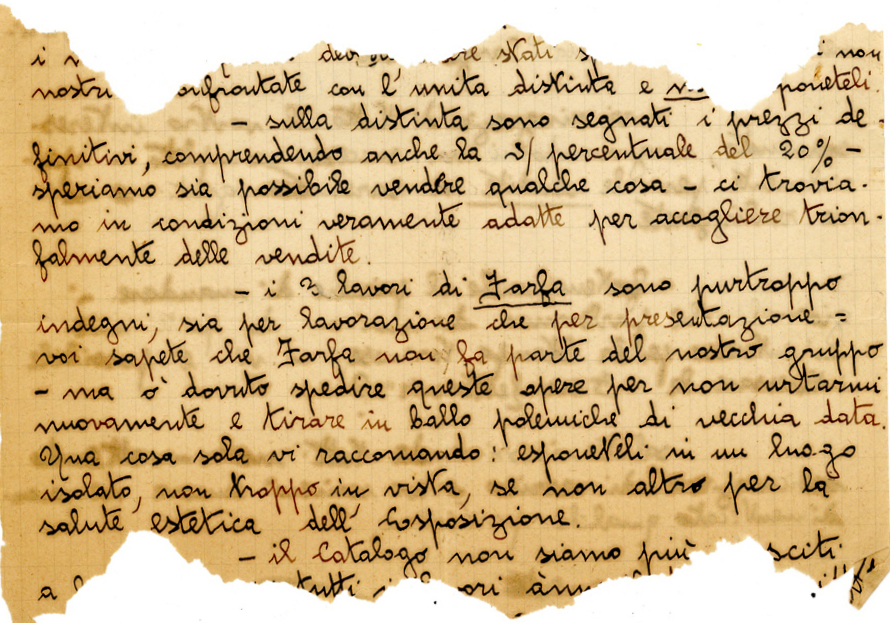 i stati non
nostri confrontate con l'unita distinta e poneteli.
– sulla distinta sono segnati i prezzi de-
finitivi, comprendendo anche la s/ percentuale del 20% –
speriamo sia possibile vendere qualche cosa – ci trovia-
mo in condizioni veramente adatte per accogliere trion-
falmente delle vendite.
– i 2 lavori di Farfa sono purtroppo
indegni, sia per lavorazione che per presentazione =
voi sapete che Farfa non fa parte del nostro gruppo
– ma ò dovuto spedire queste opere per non urtarmi
nuovamente e tirare in ballo polemiche di vecchia data.
Una cosa sola vi raccomando: esponeteli in un luogo
isolato, non troppo in vista, se non altro per la
salute estetica dell'Esposizione.
– il Catalogo non siamo più sciti
a tutti i